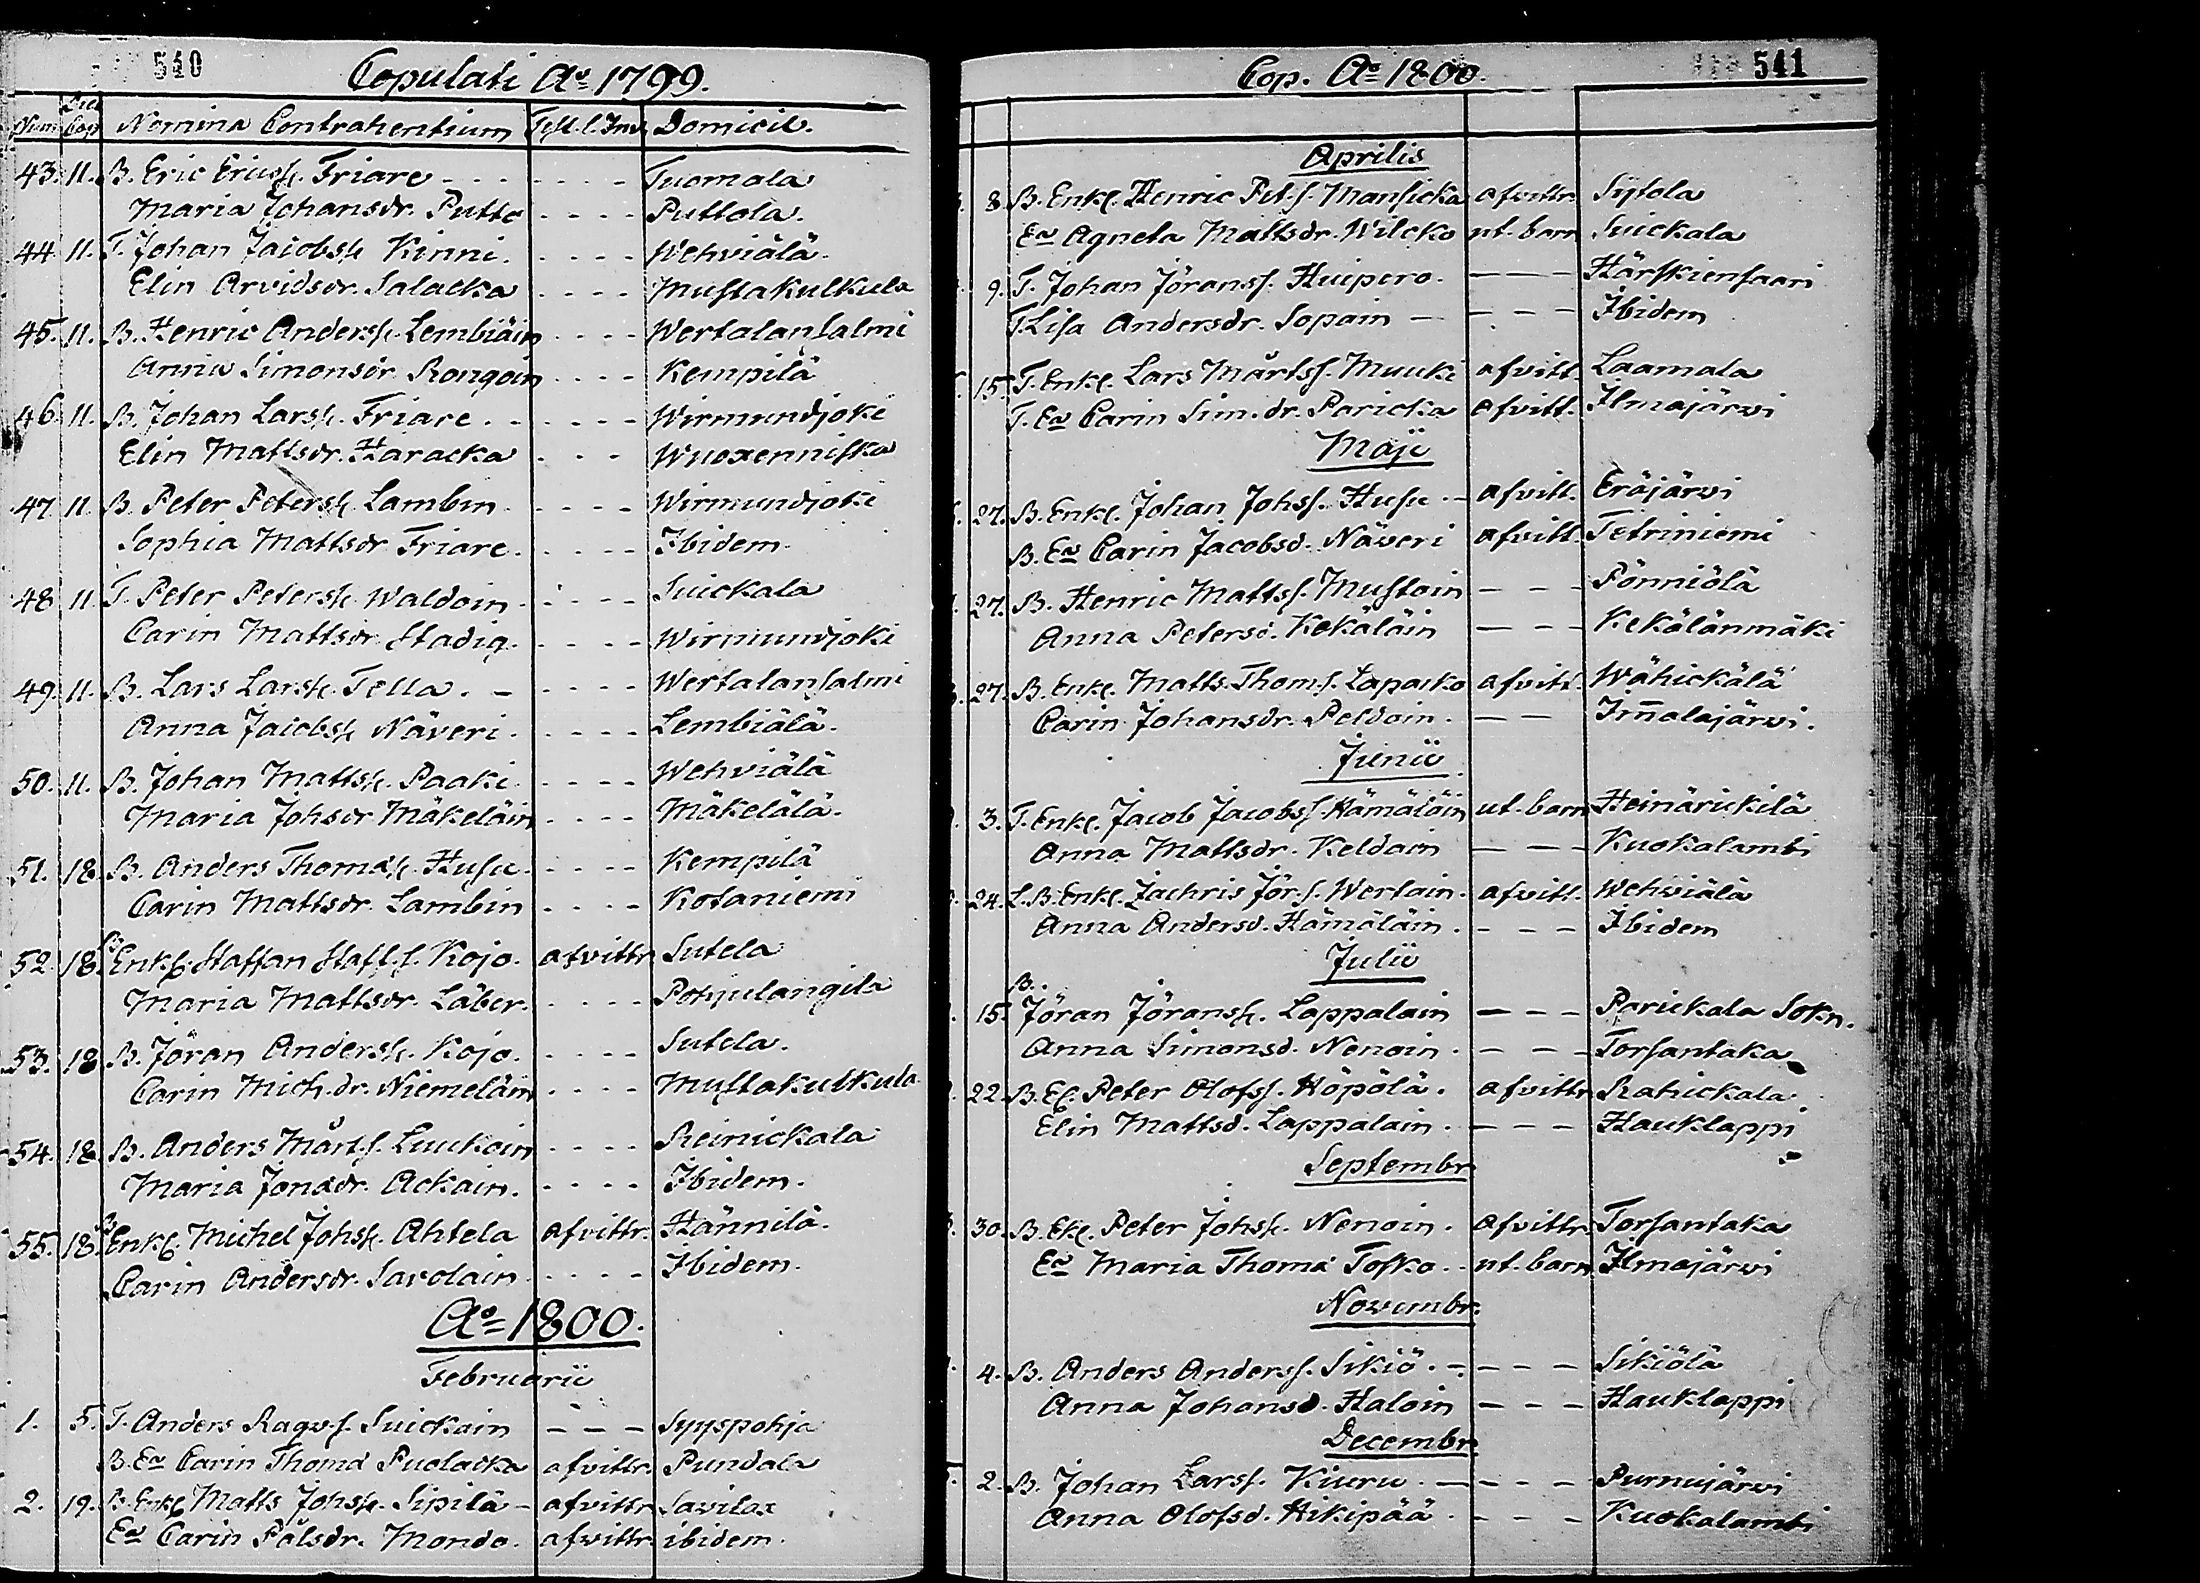 540
Copulati Ao 1799.
Num Die Cop Nomina Contrahentium Test. l. Inv. Domicil.
43. 11. B. Eric Ericss. Friare - - - - - - - Tuomala
Maria Johansdr. Putto - - - - Puttola.
44 11. T. Johan Jacobss. Kinni. - - - - Wehviälä.
Elin Arvidsdr. Salacka - - - - Mustakulkula
45. 11. B. Henric Anderss. Lembiäin - - - - Wertalansalmi
Anna Simonsdr. Rongoin - - - - Kempilä
46. 11. B. Johan Larss. Friare - - - - - - Wirmundjoki
Elin Mattsdr. Haracka - - - Wuoxenniska
47. 11. B. Peter Peterss. Lambin - - - - Wirmundjoki
Sophia Mattsdr Friare. - - - - Ibidem.
48 11 T. Peter Peterss. Waldoin - - - - Suickala
Carin Mattsdr. Stadig. - - - - Wirmundjoki
49. 11. B. Lars Larss. Tella. - - - - - Wertalansalmi
Anna Jacobss. Näveri. - - - - Lembiälä.
50. 11. B. Johan Mattss. Paaki - - - - Wehviälä
Maria Johsdr Mäkeläin - - - - Mäkelälä.
51. 18. B. Anders Thomass. Husu - - - - Kempilä
Carin Mattsdr. Lambin - - - - Kotaniemi
52. 18. B. Enkl. Staffan Staff.s. Kojo. afvittr Sutela
Maria Mattsdr. Läber. - - - - Pohjulangila
53. 18 B. Jöran Anderss. Kojo. - - - - Sutela.
Carin Mich.dr. Niemeläin - - - - Mustakulkula
54. 18. B. Anders Mårt.s. Luukoin - - - - Reinickala
Maria Jonædr. Ackain. - - - - Ibidem.
55. 18. B. Enkl. Michel Johss. Ahtela afvittr. Hännilä.
Carin Andersdr. Savolain - - - - Ibidem.
Ao 1800.
Februarii
1. 5. T. Anders Ragv.s. Suickain - - - Syyspohja
B. Ea Carin Thomæ Puolacka afvittr. Pundala
2. 19. B. Enkl Matts Johss. Sipilä - afvittr Savilax
Ea Carin Pålsdr. Mondo. afvittr. ibidem.
541
Cop. Ao 1800.
Aprilis
8. B. Enkl. Henric Pet.s. Mansicka afvittr. Sÿtola
Ea Agneta Mattsdr. Wilcko ut. barn Suickala
9. T. Johan Jöranss. Huipero. - - - Härskiensaari
T. Lisa Andersdr. Sopain - - - - Ibidem
15. T. Enkl. Lars Mårtss. Muuki afvitt. Laamala
T. Ea Carin Sim.dr. Paricka afvitt. Ilmajärvi
Maji
27. B. Enkl. Johan Johss. Husu - afvitt. Eräjärvi
B. Ea Carin Jacobsd. Näveri afvitt. Tetriniemi
27. B. Henric Mattss. Mustoin - - - Pönniölä
Anna Petersd. Kekäläin - - - Kekälänmäki
27. B. Enkl. Matts Thom.s. Lapacko afvitt. Wähickälä
Carin Johansdr. Peldoin. - - Im̄alajärvi.
Junii
3. T. Enkl. Jacob Jacobss. Hämäläin ut. barn Heinärickilä
Anna Mattsdr. Keldain - - - Kuokalambi
24. L. B. Enkl. Zachris Jör.s. Wertain. afvitt. Wehviälä
Anna Andersd. Hämäläin. - - - Ibidem
Julii
15. B. Jöran Jöranss. Lappalain - - - Parickala Sokn.
Anna Simonsd. Nenoin. - - - Torsantaka
22. B. El. Peter Olofss. Höpölä. afvittr Rahickala
Elin Mattsd. Lappalain. - - - Hauklappi
Septembr.
30. B. Ekl. Peter Johss. Nenoin. afvittr. Torsantaka
Ea Maria Thomæ Tosko. ut. barn Ilmajärvi
Novembr.
4. B. Anders Anderss. Sikiö. - - - - Sikiölä
Anna Johansd. Haloin - - - Hauklappi
Decembr.
2. B. Johan Larss. Kiuru. - - - - Purnujärvi
Anna Olofsd. Hikipää. - - - Kuokalambi